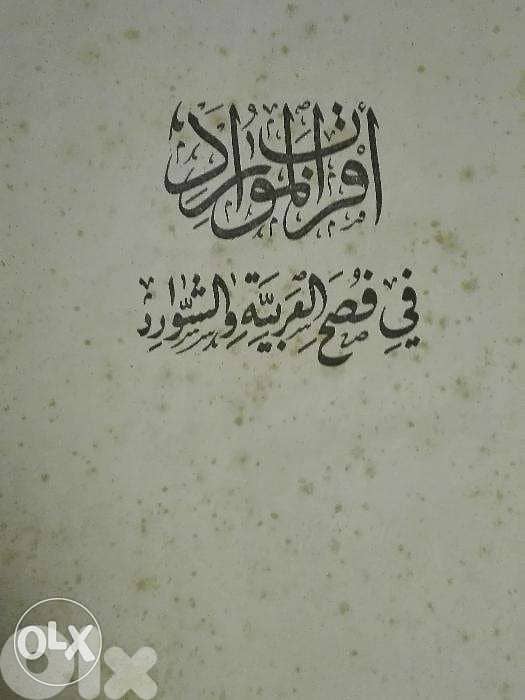 أقرب الموارد
في فُصَحِ العَرَبِيَّةِ والشَّوَارِد
OLX
OLX